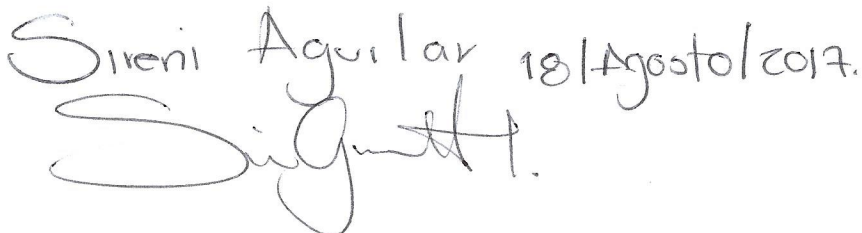 Sireni Aguilar 18/Agosto/2017.